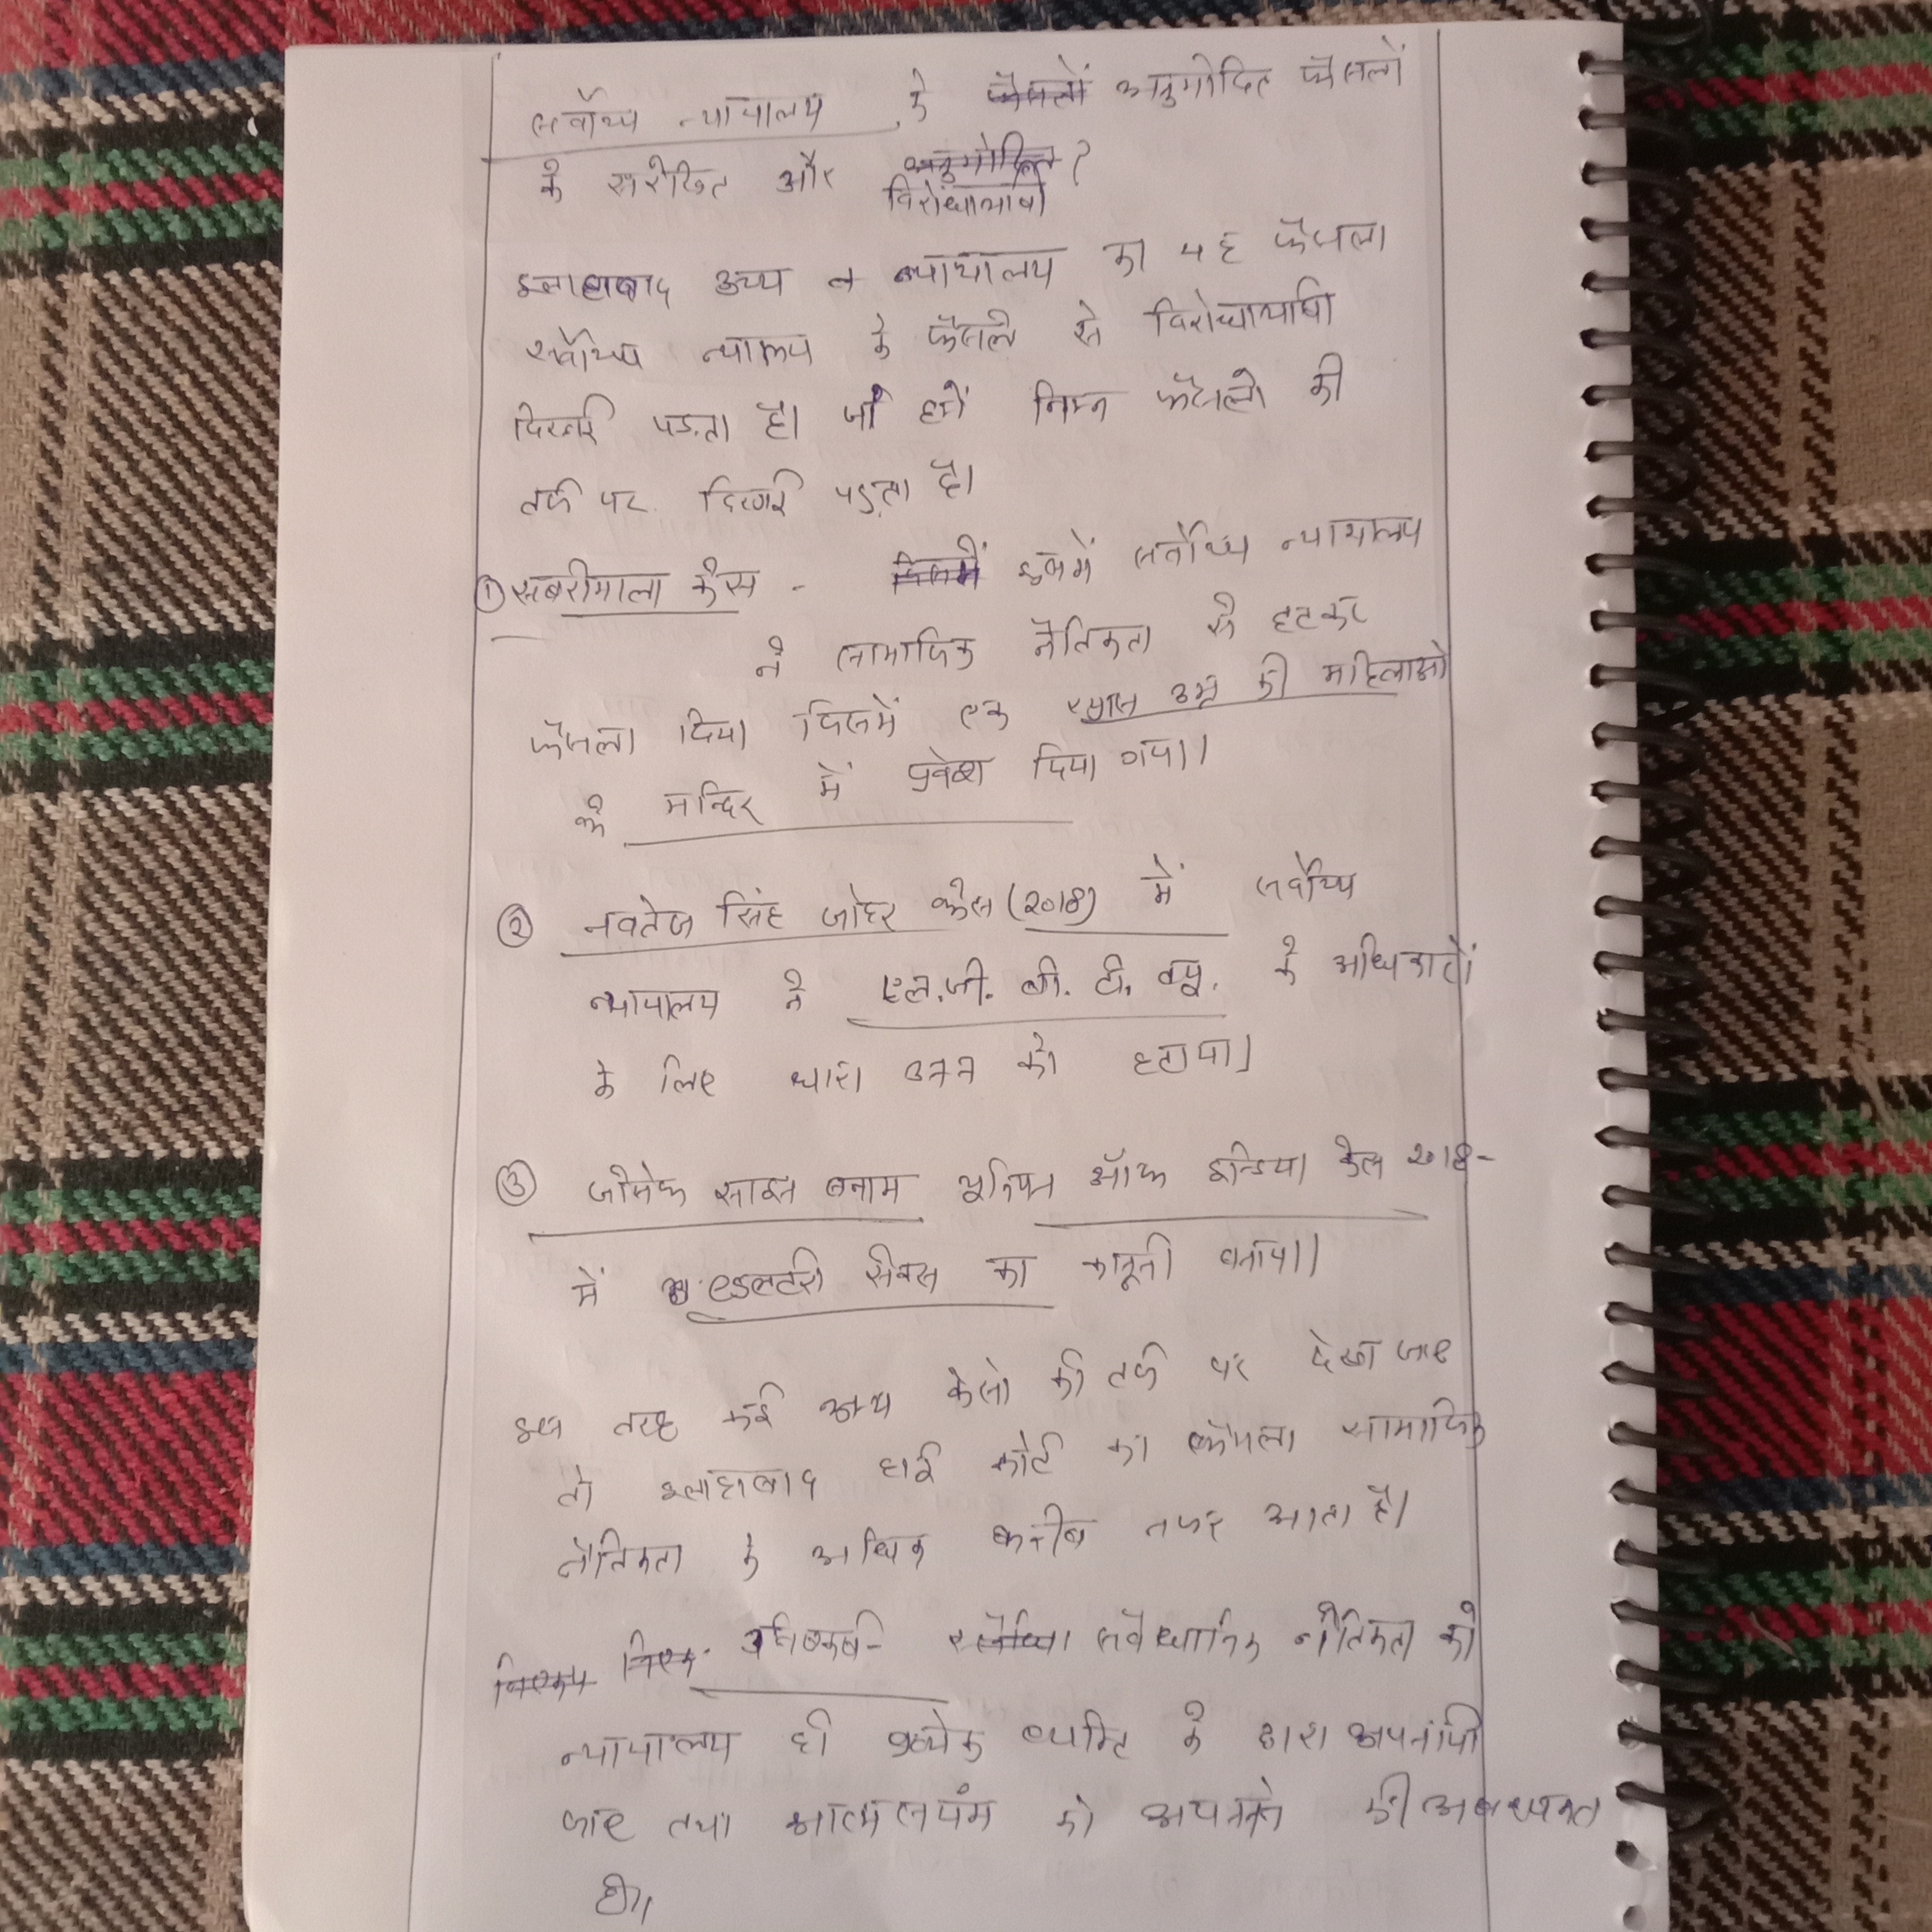 सर्वोच्च न्यायालय के फैसलों अनुमोदित फैसलों
के सरेखित और अनुमोदित ?
विरोधाभाषी
इलाहाबाद उच्च न न्यायालय का यह फैसला
सर्वोच्च न्यालय के फैसले से विरोधाभाषी
दिखाई पड़ता है। जो हमें निम्न फैसलो की
तर्क पर दिखाई पड़ता है।
① सबरीमाला केस - जिसमें इसमें सर्वोच्च न्यायालय
ने सामाजिक नैतिकता से हटकर
फैसला दिया जिसमें एक खास उम्र की महिलाओ
के मन्दिर में प्रवेश दिया गया।
② नवतेज सिंह जोहर केस (2018) में सर्वोच्च
न्यायालय ने एल.जी. बी. टी. क्यू. के अधिकारों
के लिए धारा 377 को हटाया।
③ जोसेफ साइन बनाम यूनियन ऑफ इन्डिया केस 2018-
में एडल्टरी सेक्स का कानूनी बनाया।
इस तरह कई अन्य केसो की तर्क पर देखा जाए
तो इलाहाबाद हाई कोर्ट का फैसला सामाजिक
नैतिकता के अधिक करीब नजर आता है।
निष्कष निष्क निष्कर्ष- सवैधानिक नैतिकता को
न्यायालय ही प्रत्येक व्यक्ति के द्वारा अपनायी
जाए तथा आत्मसयंम को अपनाने की आवश्यकत
ही।